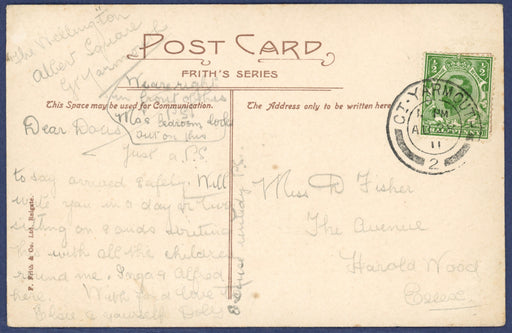 "The Wellington"
Albert Square
Gt Yarmouth
POST CARD
FRITH'S SERIES
We are right
in front of this
Ma's bedroom looks
out on this
This Space may be used for Communication.
The Address only to be written here
Dear Doris
Just a P.S.
to say arrived safely. Will
write you in a day or two
sitting on sands writing
this with all the children
round me.
Alfred
here. With fond love to
& yourself Dolly
Miss D Fisher
The Avenue
Harold Wood
Essex.
GT. YARMOUTH
PM
11
2
HALFPENNY
F. Frith & Co. Ltd. Reigate.